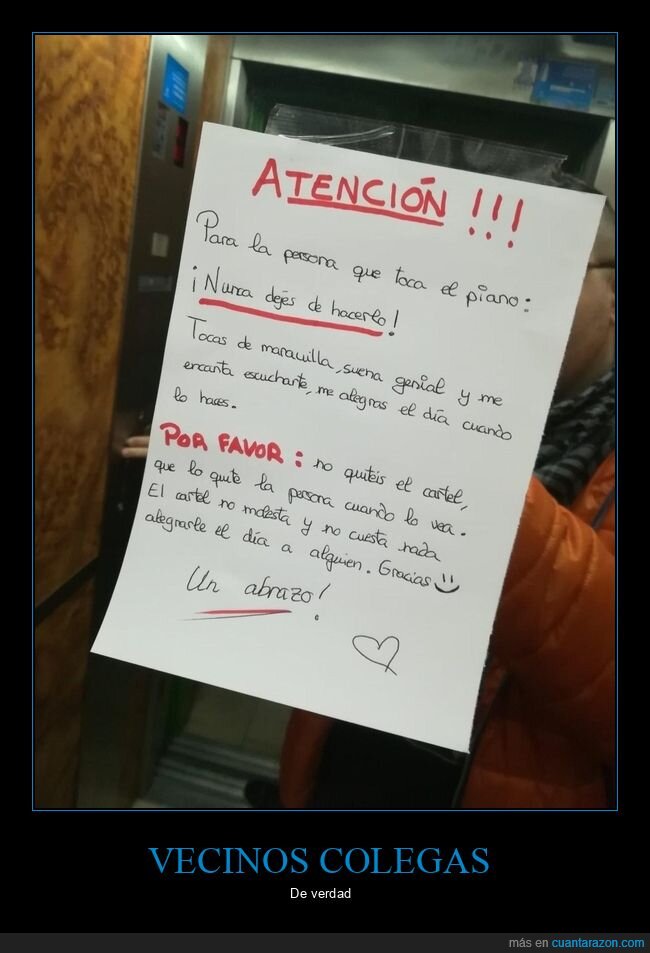 ATENCIÓN !!!
Para la persona que toca el piano:
¡Nunca dejes de hacerlo!
Tocas de maravilla, suena genial y me
encanta escucharte, me alegras el día cuando
lo haces.
POR FAVOR: no quitéis el cartel,
que lo quite la persona cuando lo vea.
El cartel no molesta y no cuesta nada
alegrarle el día a alguien. Gracias
Un abrazo!
VECINOS COLEGAS
De verdad
más en cuantarazon.com